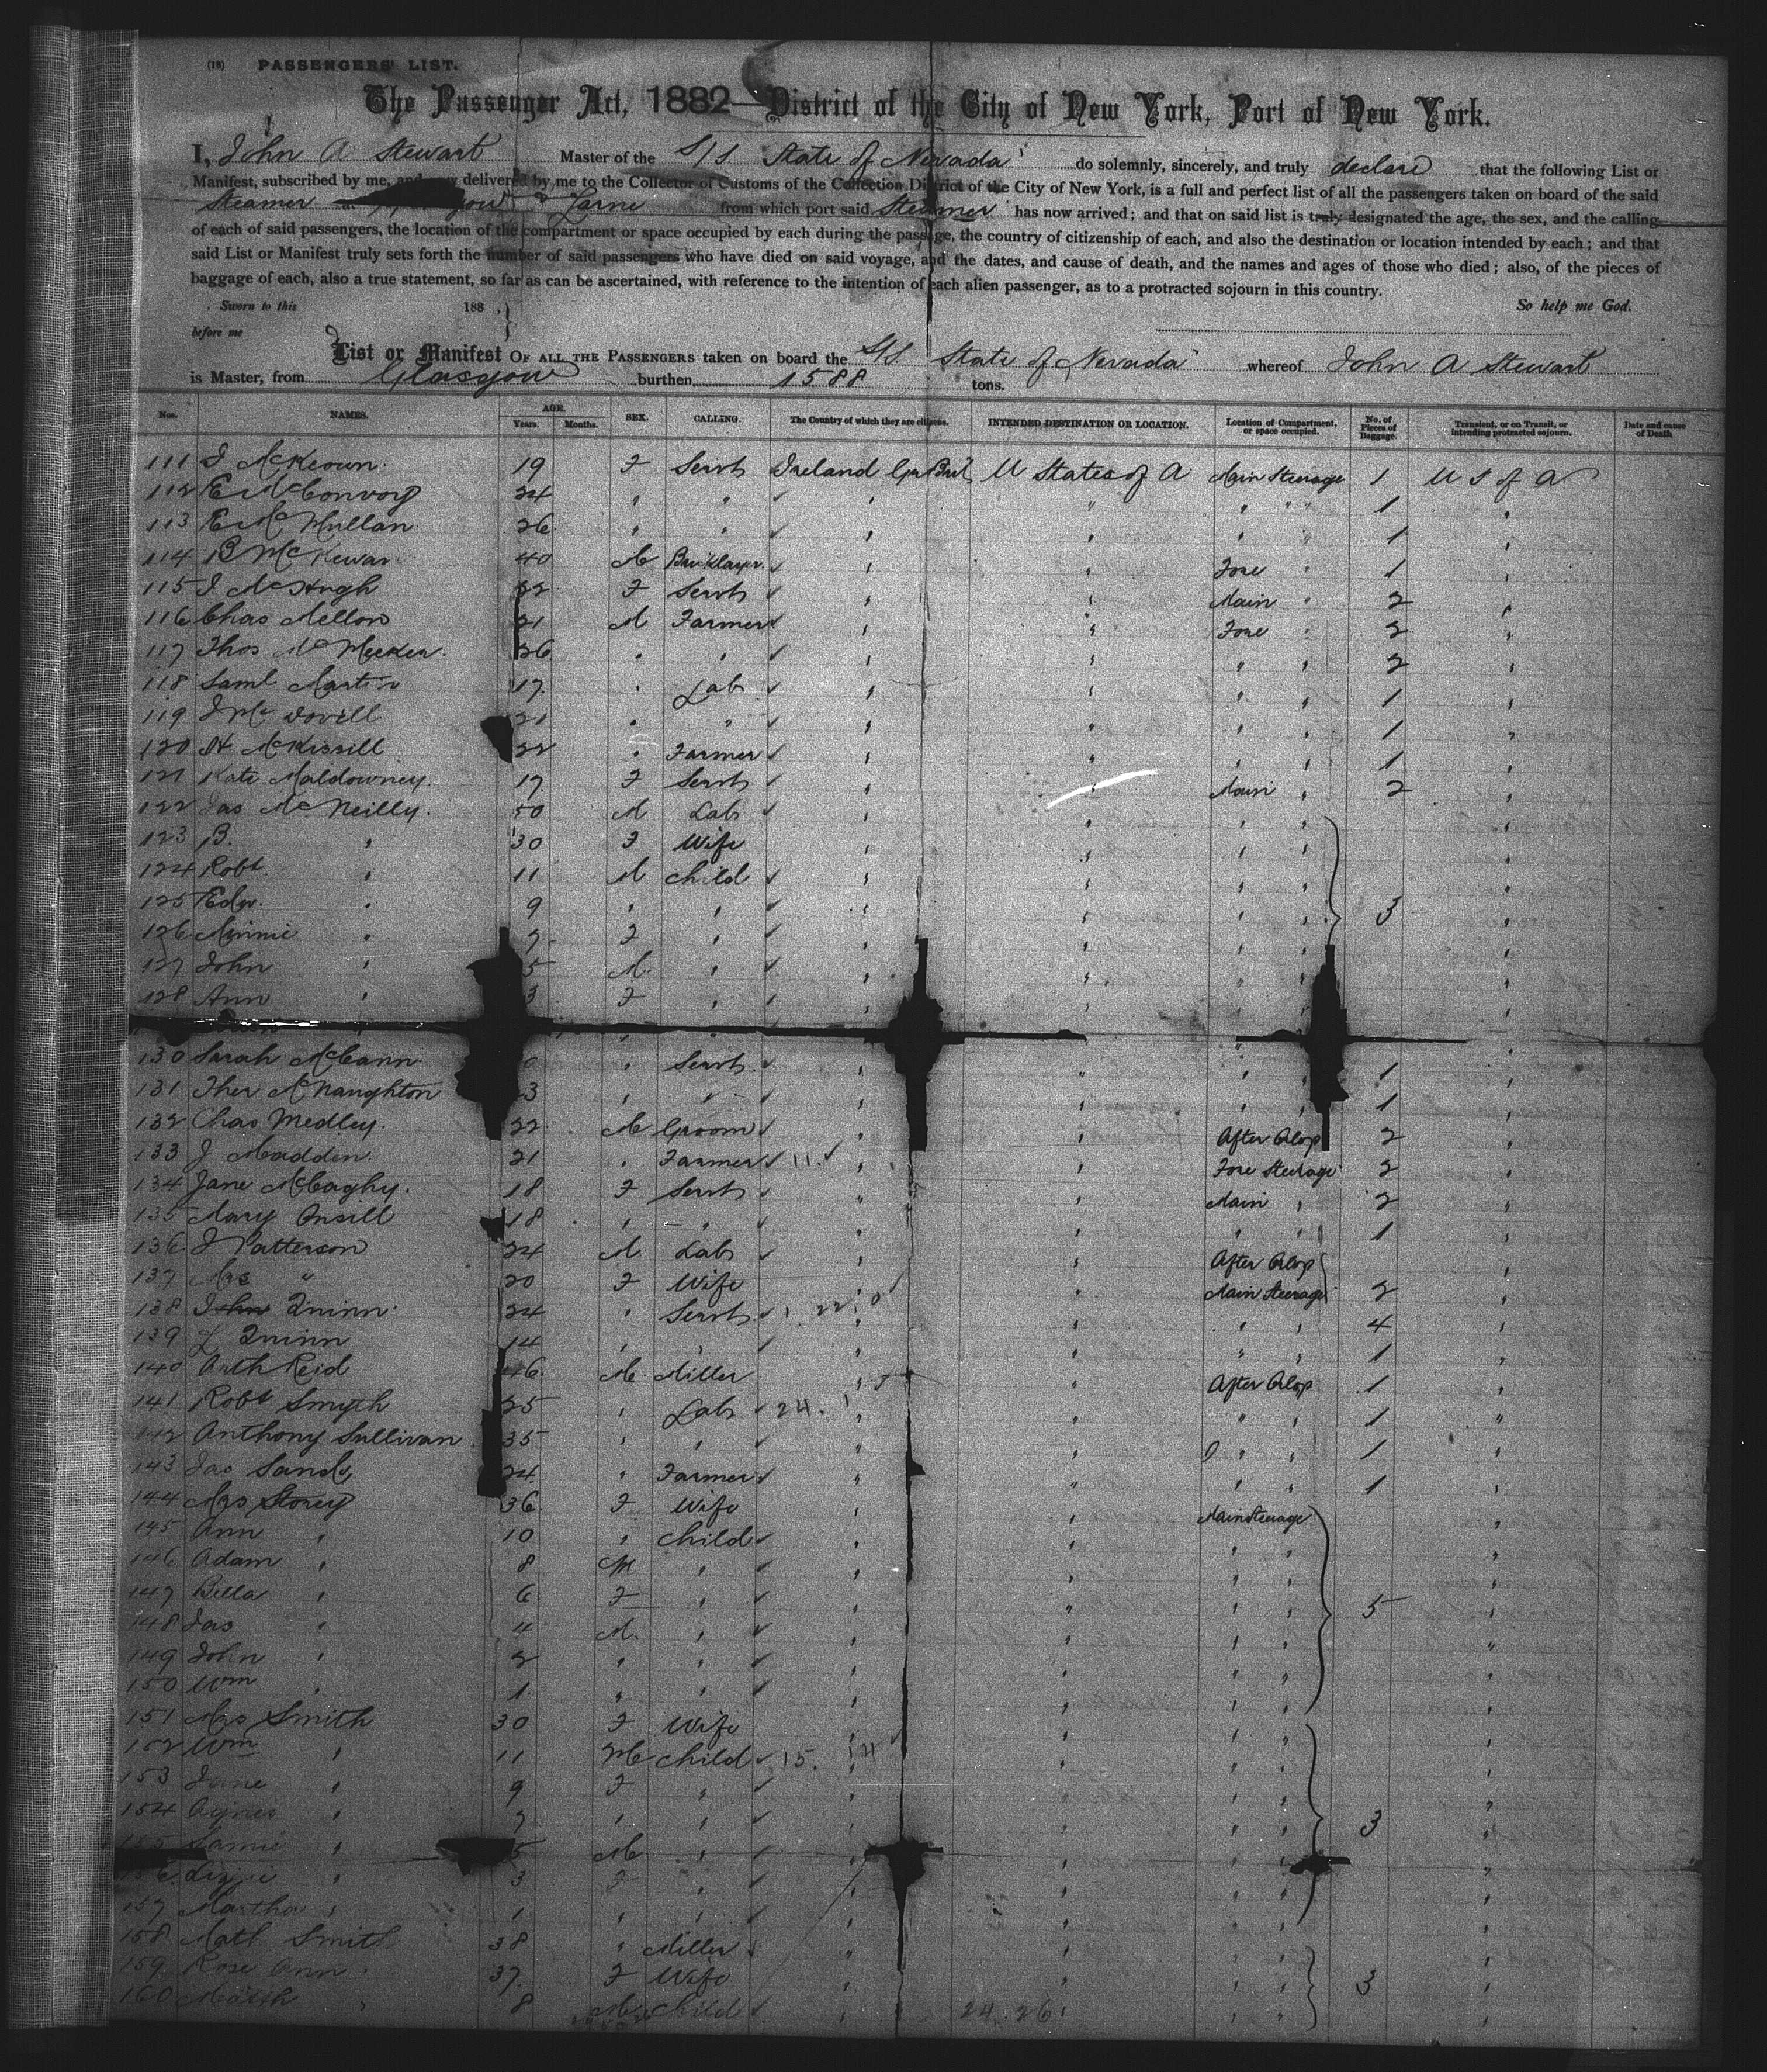 (18) PASSENGERS' LIST.
The Passenger Act, 1882—District of the City of New York, Port of New York.
I, John A Stewart Master of the S/S "State of Nevada" do solemnly, sincerely, and truly declare that the following List or
Manifest, subscribed by me, and now delivered by me to the Collector of Customs of the Collection District of the City of New York, is a full and perfect list of all the passengers taken on board of the said
Steamer at Larne from which port said Steamer has now arrived; and that on said list is truly designated the age, the sex, and the calling
of each of said passengers, the location of the compartment or space occupied by each during the passage, the country of citizenship of each, and also the destination or location intended by each; and that
said List or Manifest truly sets forth the number of said passengers who have died on said voyage, and the dates, and cause of death, and the names and ages of those who died; also, of the pieces of
baggage of each, also a true statement, so far as can be ascertained, with reference to the intention of each alien passenger, as to a protracted sojourn in this country.
Sworn to this 188 . So help me God.
before me
List or Manifest OF ALL THE PASSENGERS taken on board the S/S "State of Nevada" whereof John A Stewart
is Master, from Glasgow burthen 1588 tons.
Nos. NAMES. AGE. Years. Months. SEX. CALLING. The Country of which they are citizens. INTENDED DESTINATION OR LOCATION. Location of Compartment, or space occupied. No. of Pieces of Baggage. Transient, or on Transit, or intending protracted sojourn. Date and cause of Death
111 J McKeown 19 F Servt Ireland Gr Brit U States of A Main Steerage 1 U S of A
112 E McConvoy 24 " " " " " " 1 "
113 E McMullan 26 " " " " " " 1 "
114 B McKewan 40 M Bricklayer " " Fore " 1 "
115 J McHugh 22 F Servt " " Main " 2 "
116 Chas Mellon 21 M Farmer " " Fore " 2 "
117 Thos McMeeken 26 " " " " " " 2 "
118 Saml Martin 17 " Lab " " " " 1 "
119 J McDovill 21 " " " " " " 1 "
120 H McKissill 22 " Farmer " " " " 1 "
121 Kate Maldowney 17 F Servt " " Main " 2 "
122 Jas McNeilly 50 M Lab " " " " "
123 B. " 30 F Wife " " " " "
124 Robt " 11 M Child " " " " "
125 Edw. " 9 " " " " " " 3 "
126 Minnie " 7 F " " " " " "
127 John " 5 M " " " "
128 Ann " 3 F " " " "
130 Sarah McCann " Servt " " " " 1 "
131 Ther McNaughton 23 " " " " " " 1 "
132 Chas Medley 22 M Groom " " After Orlop 2 "
133 J Madden 21 " Farmer 11 " " Fore Steerage 2 "
134 Jane McCaghy 18 F Servt " " Main " 2 "
135 Mary Ansill 18 " " " " " " 1 "
136 J Patterson 24 M Lab " " After Orlop "
137 Mrs " 20 F Wife " Main Steerage 2 "
138 Quinn 24 " Servt 22 " " " 4 "
139 J Quinn 14 " " " " " " 1 "
140 Arth Reid 46 M Miller " After Orlop 1 "
141 Robt Smyth 25 " Lab 24 " " " " 1 "
142 Anthony Sullivan 35 " " " " " " 1 "
143 Jas Sands 24 " Farmer " " " " 1 "
144 Mrs Storey 36 F Wife " " Main Steerage "
145 Ann " 10 " Child " " " " "
146 Adam " 8 M " " " " " "
147 Bella " 6 F " " " " " 5 "
148 Jas " 4 M " " " " " "
149 John " 2 " " " " " " "
150 Wm " 1 " " " " " " "
151 Mrs Smith 30 F Wife " " " " "
152 Wm " 11 M Child 15 " " " " "
153 Jane " 9 F " " " " " "
154 Agnes " 7 " " " " " " 3 "
155 Samie " 5 M " " " "
156 Lizzie " 3 F " " " " " "
157 Martha " 1 " " " " " " "
158 Math Smith 38 " Miller " " " " "
159 Rose Ann " 37 F Wife " " " " 3 "
160 " 8 M Child " 24. 26 " " "